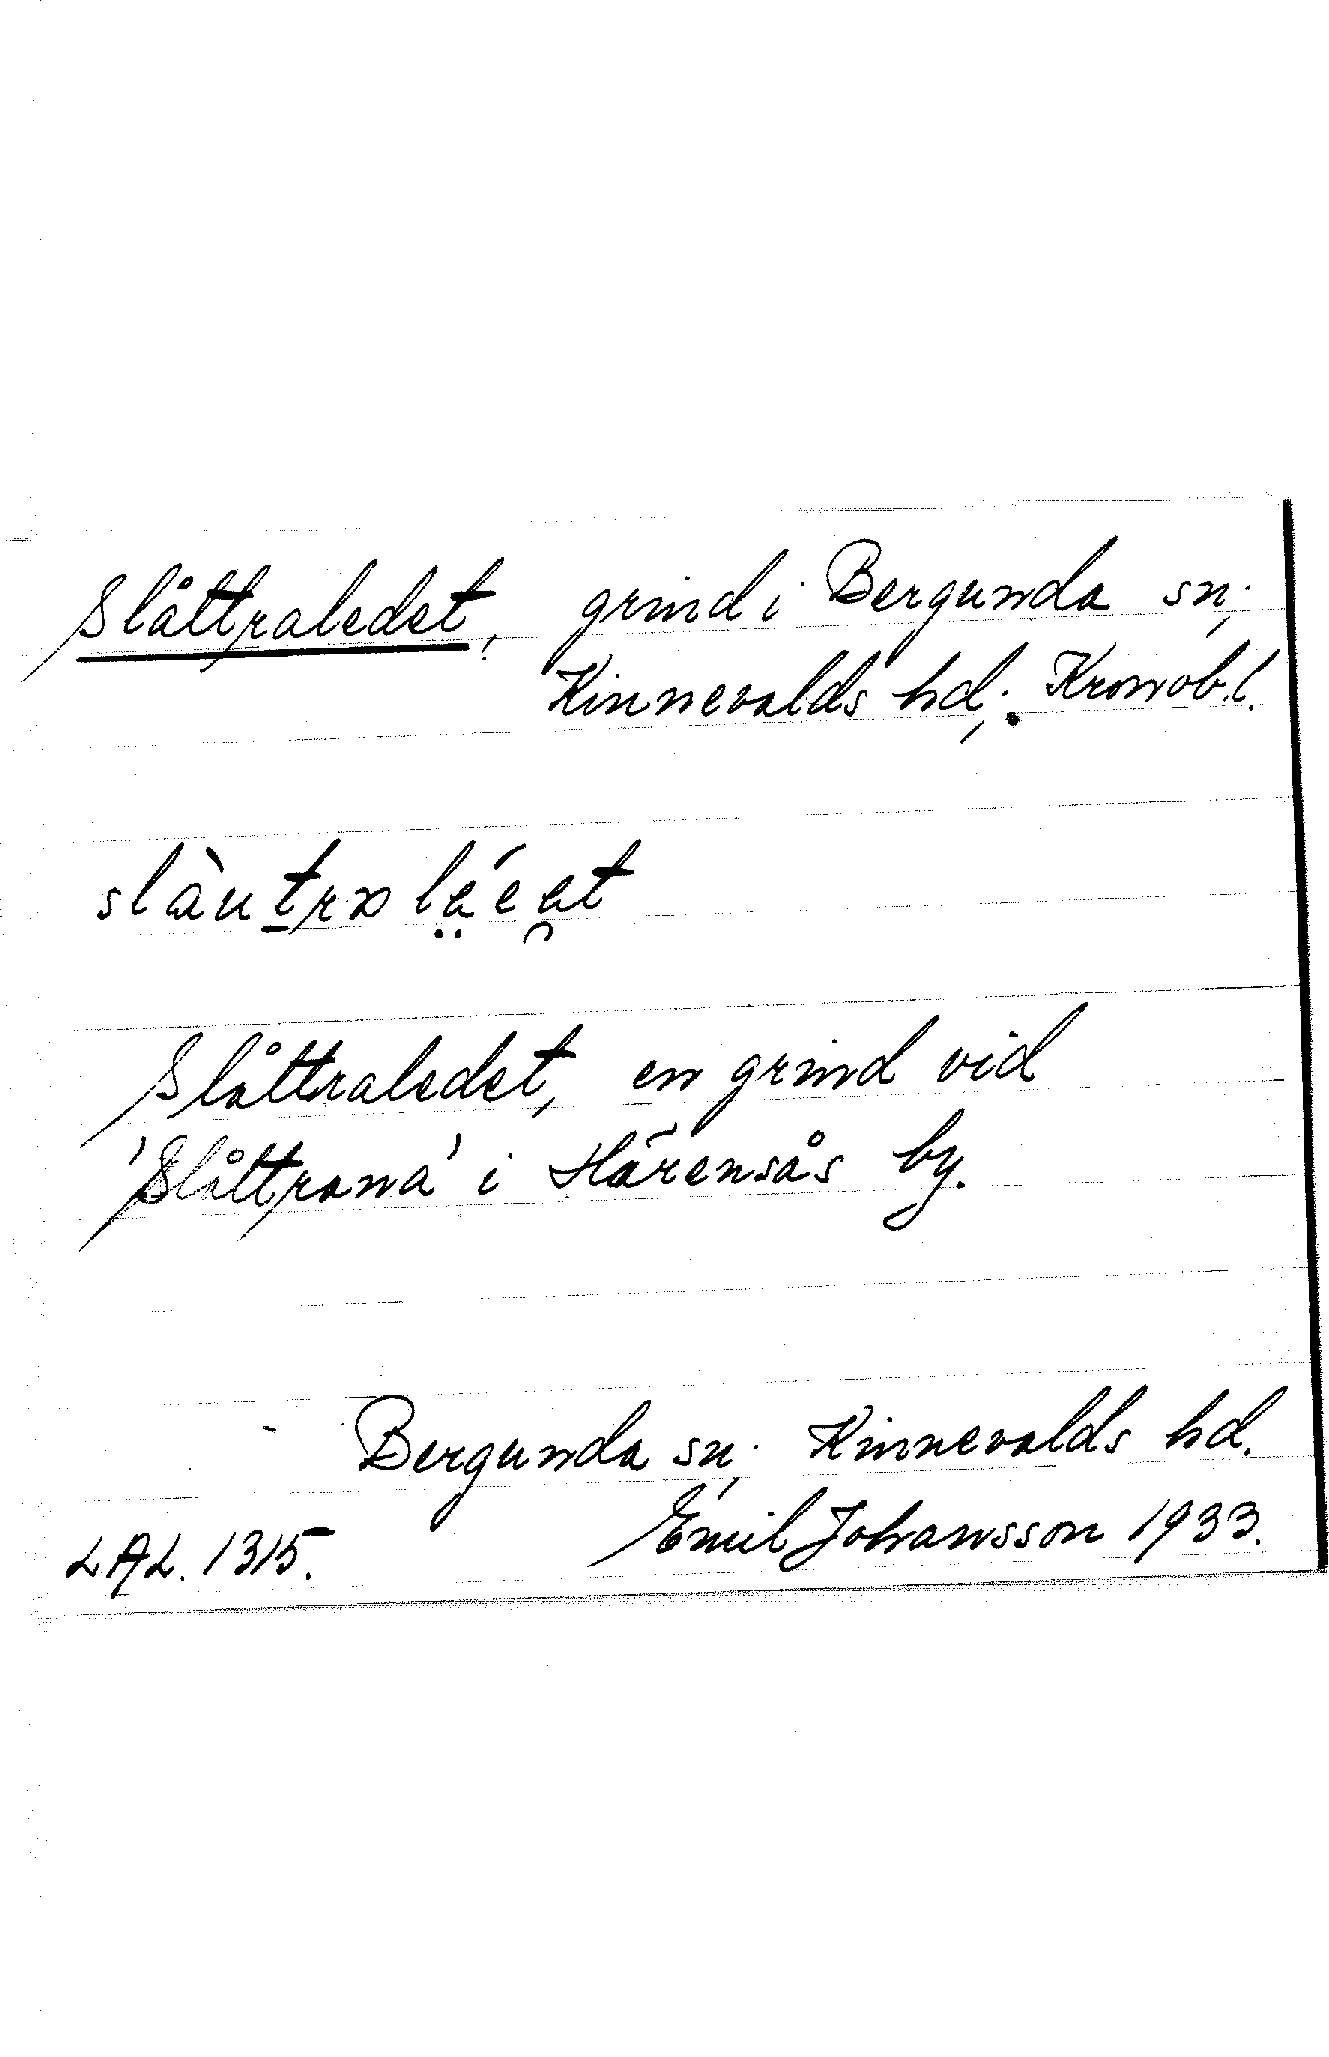 Slåttraledet, grind i Bergunda sn;
Kinnevalds hd; Kronob.l.
Slåttraledet, en grind vid
'Slåttrana' i Härensås by.
Bergunda sn; Kinnevalds hd.
LAL. 1315. Emil Johansson 1933.